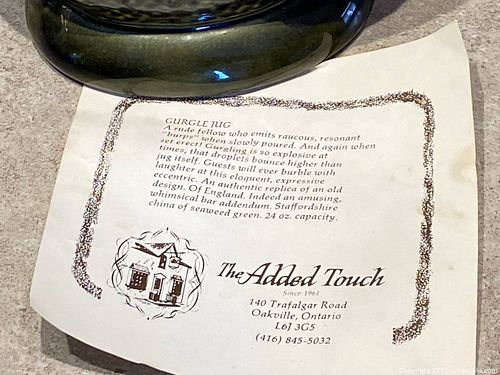 GURGLE JUG
A rude fellow who emits raucous, resonant
"burps" when slowly poured. And again when
set erect! Gurgling is so explosive at
times, that droplets bounce higher than
jug itself. Guests will ever burble with
laughter at this eloquent, expressive
eccentric. An authentic replica of an old
design. Of England. Indeed an amusing,
whimsical bar addendum. Staffordshire
china of seaweed green. 24 oz. capacity.
The Added Touch
Since 1961
140 Trafalgar Road
Oakville, Ontario
L6J 3G5
(416) 845-5032